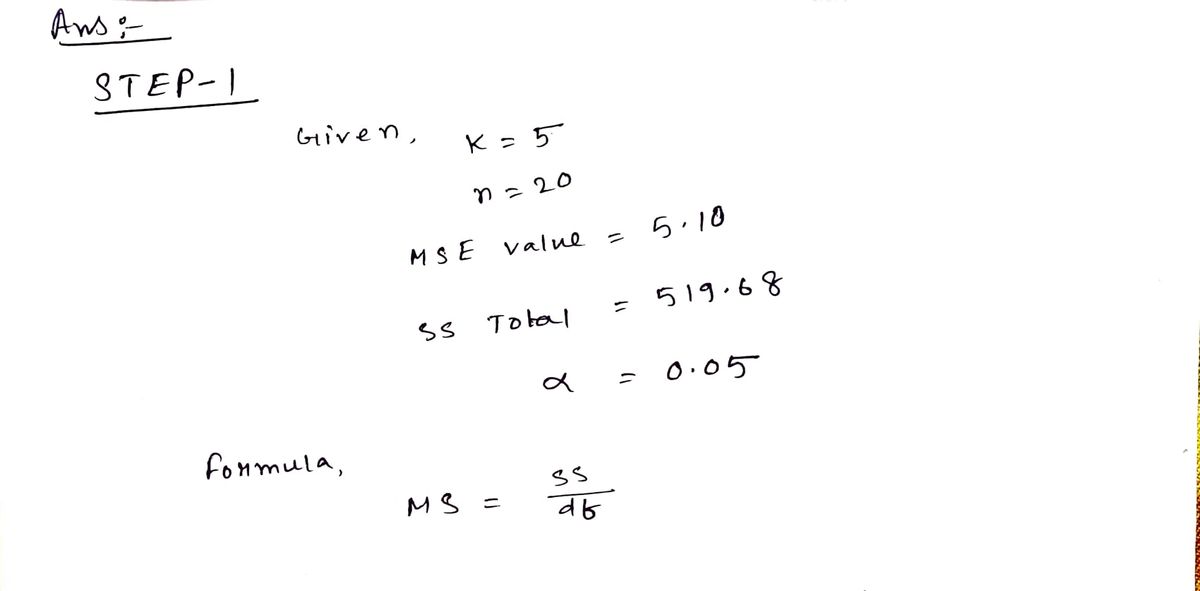 Ans :-
STEP-1
Given, K = 5
n = 20
MSE value = 5.10
SS Total = 519.68
α = 0.05
Formula,
MS = SS/df